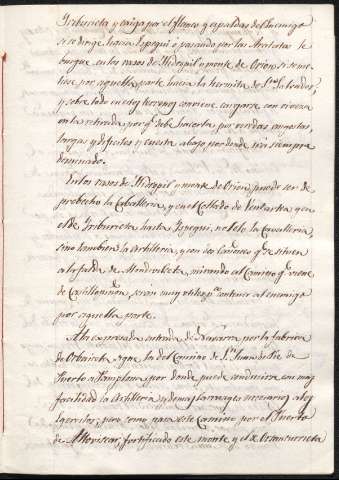 Iriburieta y caiga por el flanco y espaldas del Enemigo
si se dirige hacia Espegui o pasando por las Aratatas le
busque en los rasos de Ilidoypil o monte de Orion, si se me-
tiese por aquella parte hacia la hermita de Sn. Salvador,
y sobre todo en este terreno conviene cargarse con viveza
en la retirada, por qe. debe hacerla por veredas angostas,
largas y dificiles y cuesta abajo por donde irá siempre
dominado.
En los rasos de Ilidoypil y monte de Orion, puede ser de
probecho la Caballeria, y en el Collado de y en
el de Iriburieta hasta Ispegui, no solo la Cavalleria,
sino tambien la Artilleria, y con dos Cañones qe. se situen
a la falda de mirando al Camino qe. viene
de serán muy utiles pa. contener al enemigo
por aquella parte.
A la expresada entrada de Navarra por la fabrica
de Orbaiceta sigue la del Camino de Sn. Juan de Pie de
Puerto a Pamplona, por donde puede conducirse con mas
facilidad la Artilleria y demas barruages necesarios a los
Exercitos, pero como pasa este Camino por el Puerto
de Altoviscar, fortificado este monte y el de